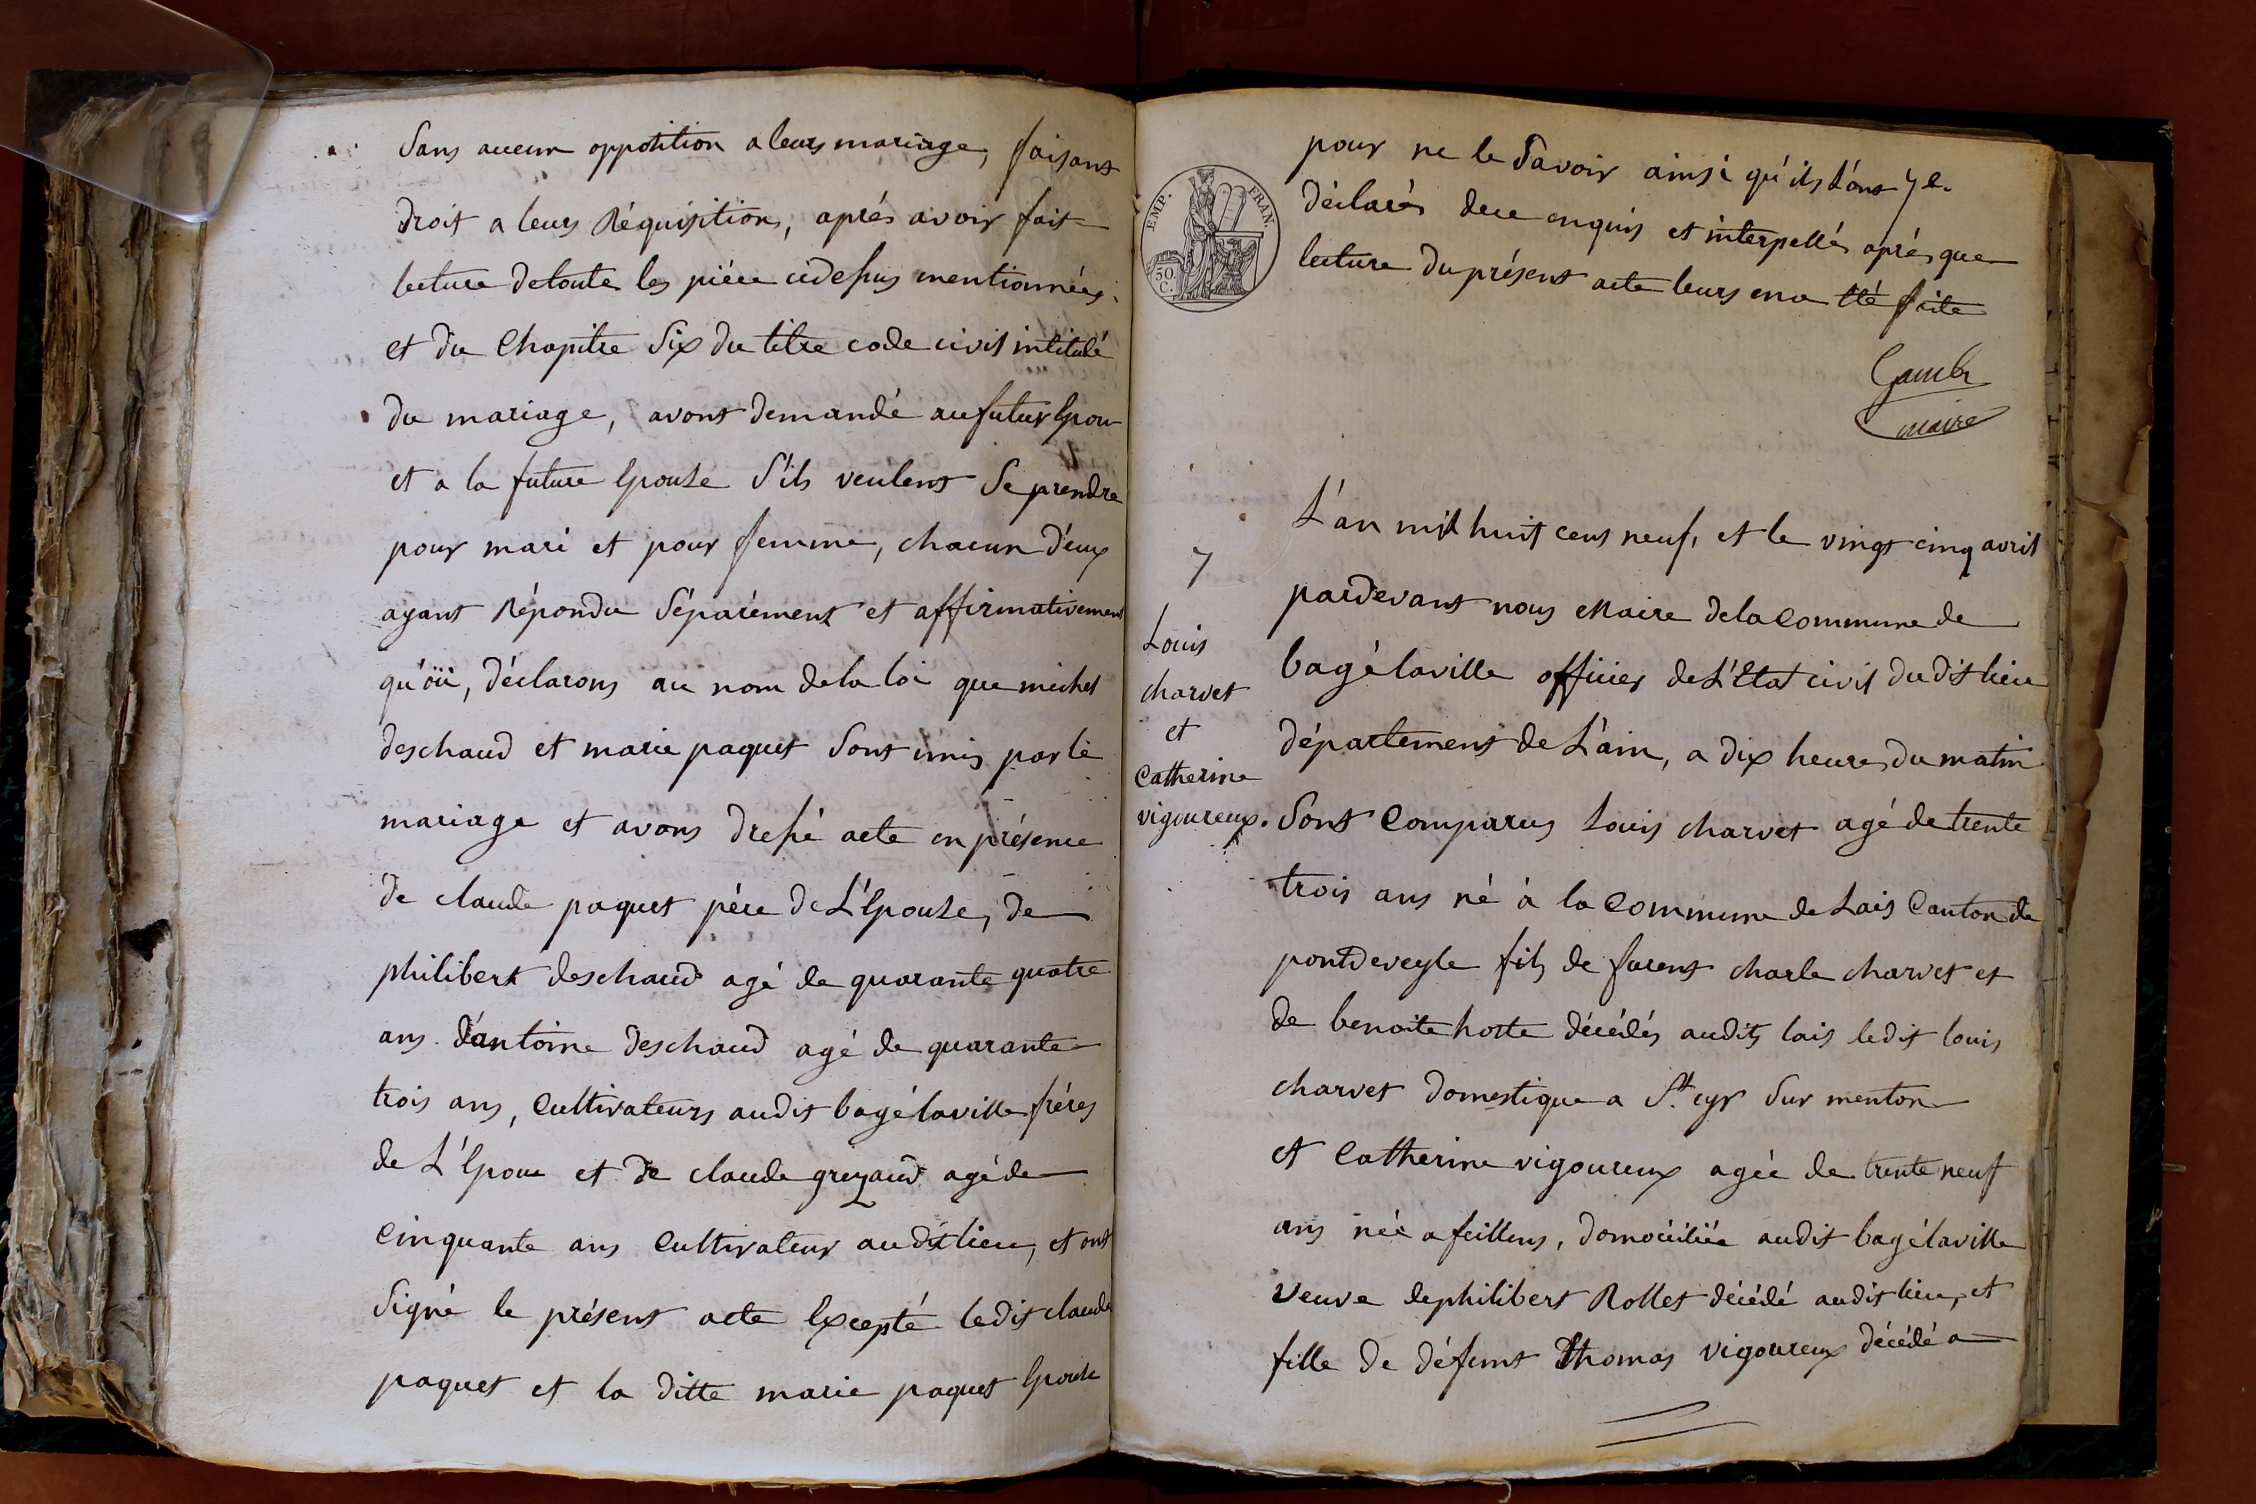 Sans aucun opposition a leurs mariage, faisant
droit a leurs Réquisitions, aprés avoir fait
lecture detoute les piéce cidessus mentionnées,
et du Chapitre Six du titre code civil intitulé
du mariage, avons demandé aufutur Epou
et a la future Epouse S'ils veulent Se prendre
pour mari et pour femme, chacun d'eux
ayant Répondu Séparément et affirmativement
qu'oüi, déclarons au nom dela loi que michel
deschaud et marie paquet Sont unis par le
mariage et avons dressé acte en présence
de claude paquet pére de L'Epouse, de
philibert deschaud agé de quarante quatre
ans. d'antoine deschaud agé de quarante
trois ans, Cultivateurs audit bagélaville fréres
de L'Epoux et de claude greyaud agéde
Cinquante ans Cultivateur audit lieu, et ont
Signé le présent acte Excepté ledit claude
paquet et la ditte marie paquet Epouse
EMP. FRAN.
50. C.
pour ne le Savoir ainsi qu'ils L'ont 7e.
déclarés dece enquis et interpellés aprés que
lecture du présent acte leurs ena été faite
maire
7
Louis
charvet
et
Catherine
vigoureux.
L'an mil huit cent neuf, et le vingt cinq avril
pardevant nous Maire dela Commune de
bagélaville officier de L'Etat civil dudit lieu
département de L'ain, a dix heures du matin
Sont Comparus Louis charvet agé detrente
trois ans né à la Commune de Lais Canton de
pontdeveyle fils de furent charle charvet et
de benoite hoste décédés audits lais ledit louis
charvet domestique a St. cyr Sur menton
et Catherine vigoureux agée de trente neuf
ans née a feillens, domiciliée audit bagélaville
Veuve dephilibert Rollet décédé audit lieu, et
fille de défunt Thomas vigoureux décédé a